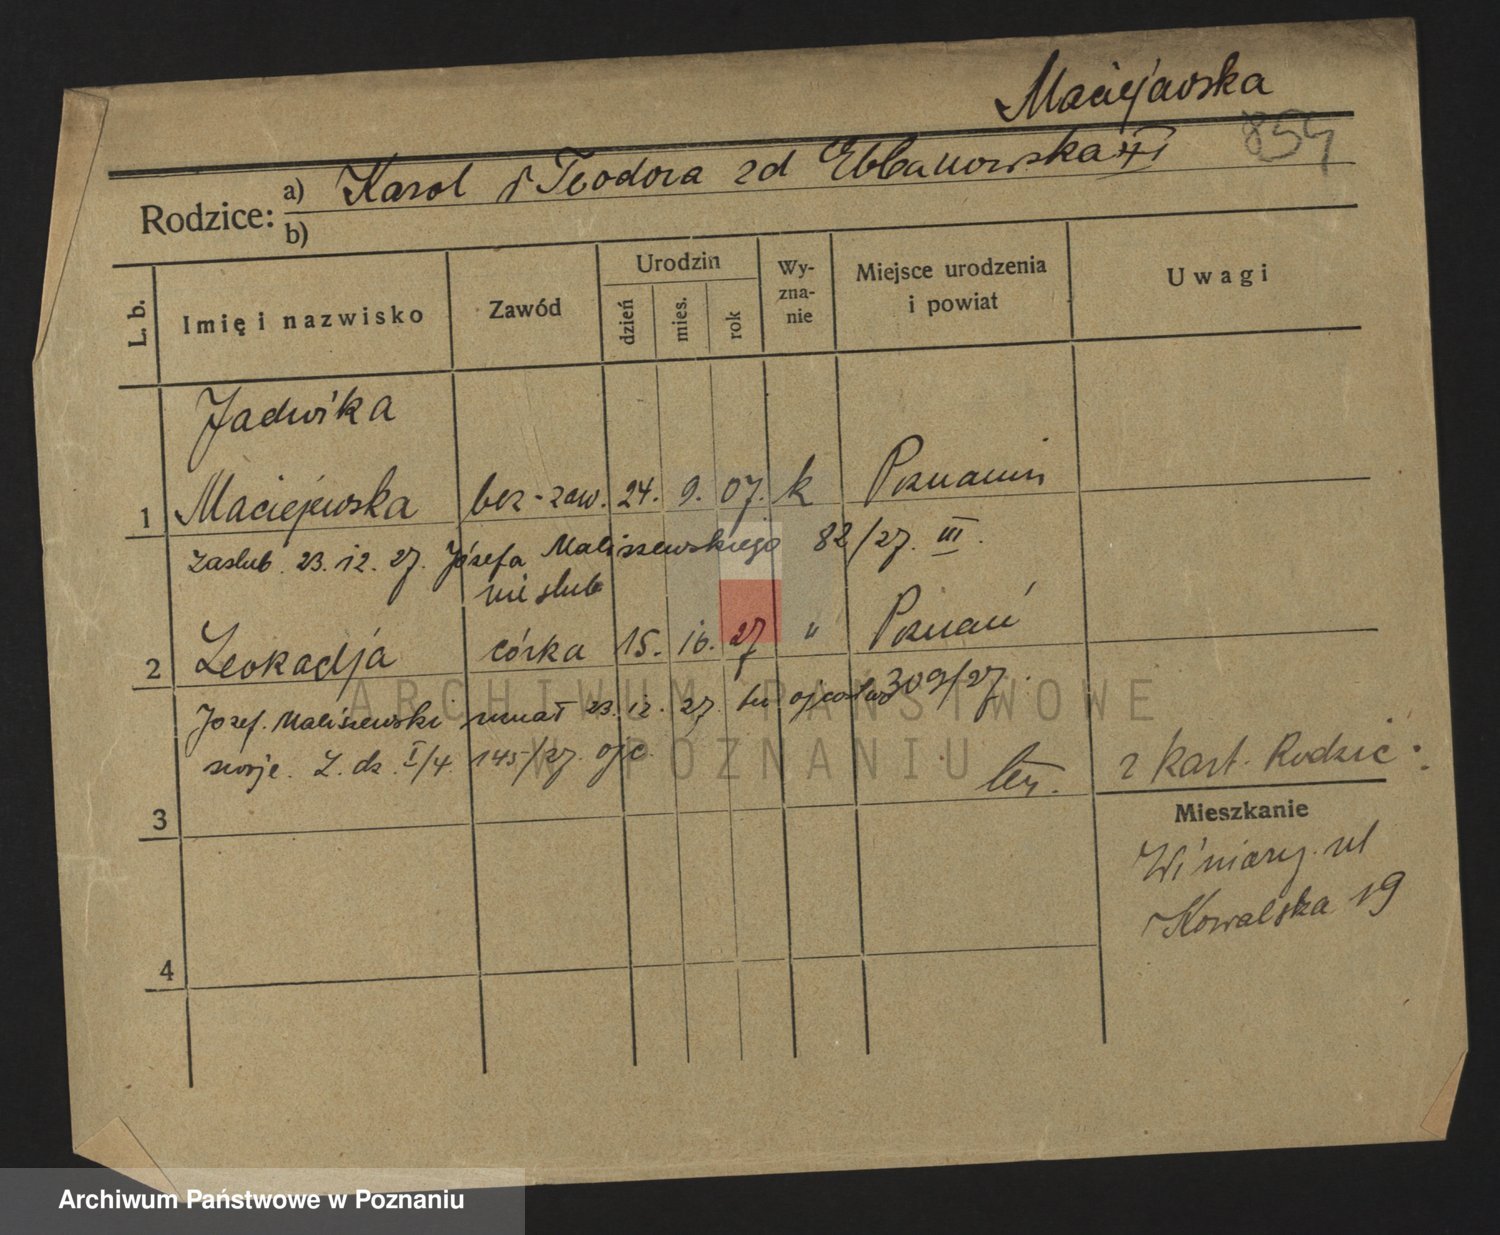 Maciejewska
854
Rodzice: a) Karol i Teodora zd Urbanowska
b)
L. b. Imię i nazwisko Zawód Urodzin dzień mies. rok Wy-zna-nie Miejsce urodzenia i powiat Uwagi
Jadwika
1 Maciejewska bez-zaw. 24. 9. 07. k Poznanin
Zaslub. 23.12.27. Józefa Maliszewskiego 82/27. III.
nieslub
2 Leokadja córka 15. 10. 27 " Poznań
Jozef. Maliszewski uznał 23.12.27. tu ojcostwo 309/27.
swoje. L. dz. I/4 145/27. ojc.
z kart. Rodzic.
3
Mieszkanie
Winiary. ul
Kowalska 19
4
ARCHIWUM PAŃSTWOWE
W POZNANIU
Archiwum Państwowe w Poznaniu